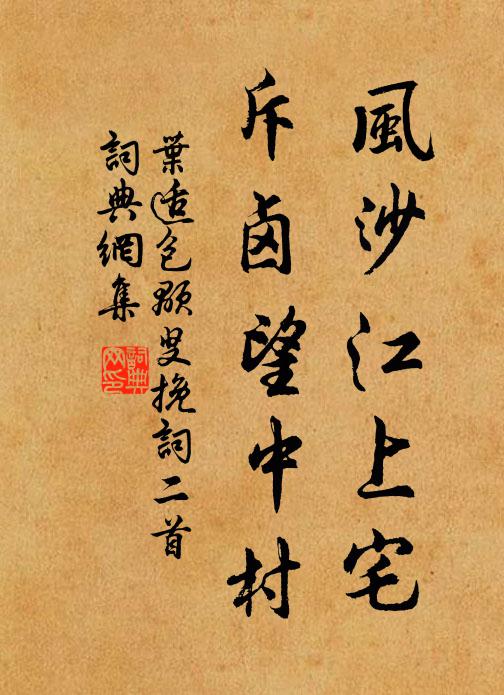 風沙江上宅
斥鹵望中村
葉适包顒叟挽詞二首
詞典網集
詞典網印